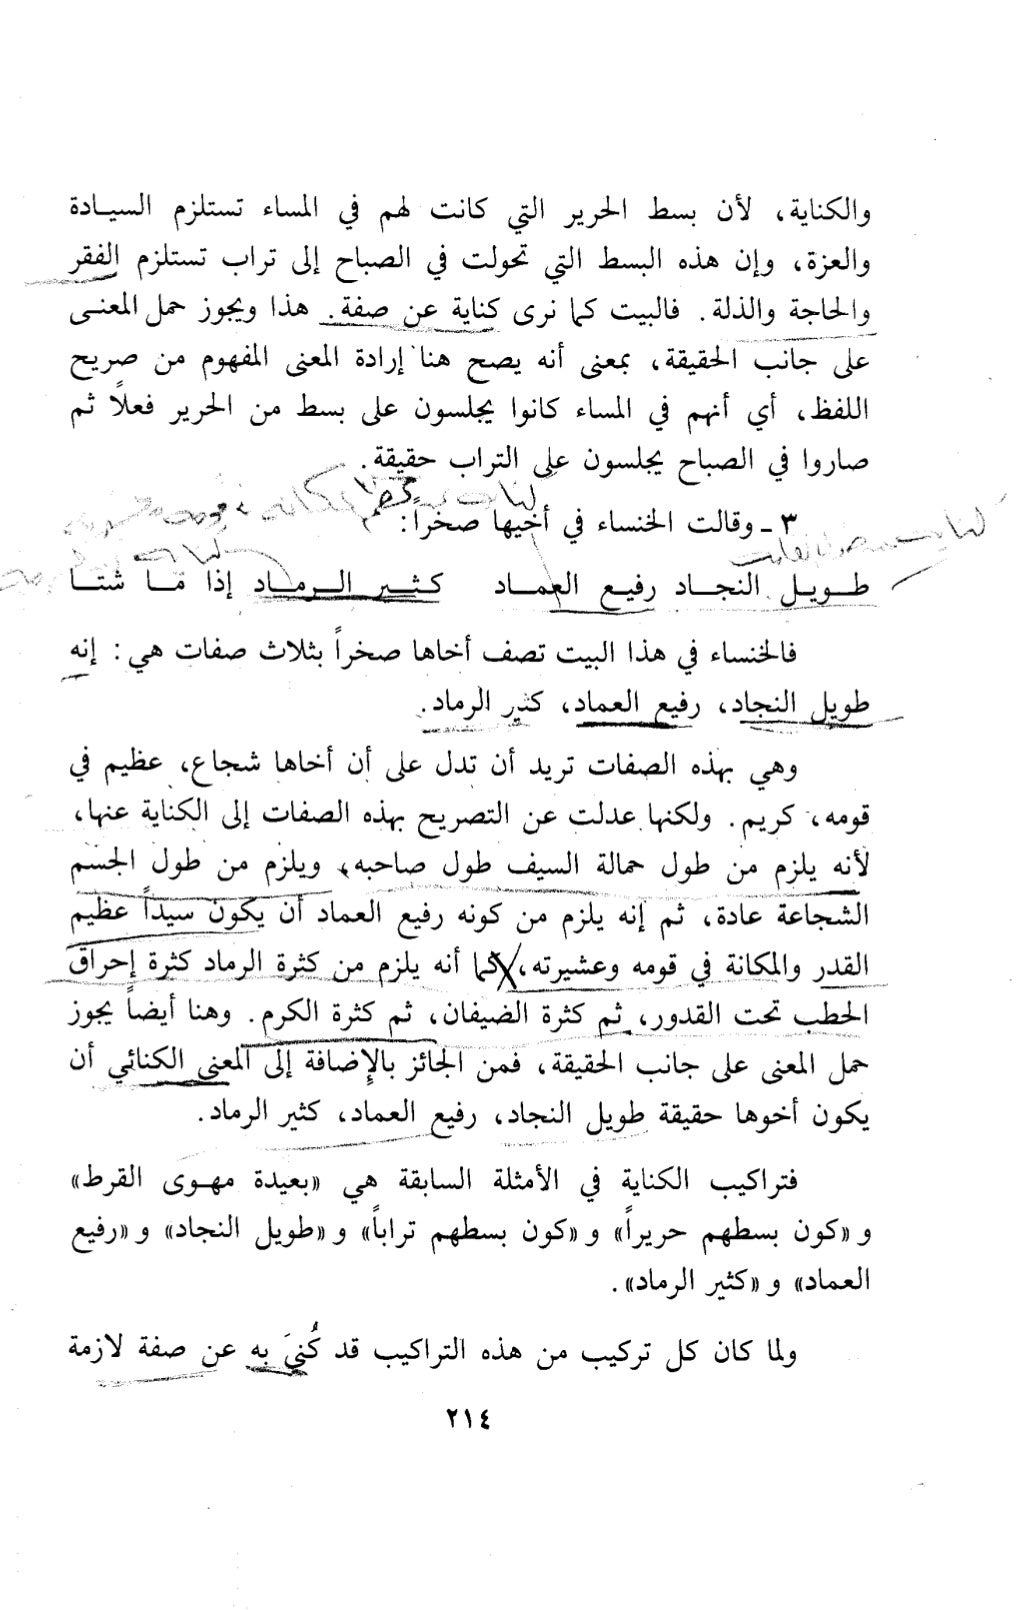 والكناية، لأن بسط الحرير التي كانت لهم في المساء تستلزم السيادة
والعزة، وإن هذه البسط التي تحولت في الصباح إلى تراب تستلزم الفقر
والحاجة والذلة. فالبيت كما نرى كناية عن صفة. هذا ويجوز حمل المعنى
على جانب الحقيقة، بمعنى أنه يصح هنا إرادة المعنى المفهوم من صريح
اللفظ، أي أنهم في المساء كانوا يجلسون على بسط من الحرير فعلاً ثم
صاروا في الصباح يجلسون على التراب حقيقة.
٣ - وقالت الخنساء في أخيها صخراً:
طويل النجاد رفيع العماد كثير الرماد إذا ما شتا
فالخنساء في هذا البيت تصف أخاها صخراً بثلاث صفات هي: إنه
طويل النجاد، رفيع العماد، كثير الرماد.
وهي بهذه الصفات تريد أن تدل على أن أخاها شجاع، عظيم في
قومه، كريم. ولكنها عدلت عن التصريح بهذه الصفات إلى الكناية عنها،
لأنه يلزم من طول حمالة السيف طول صاحبه، ويلزم من طول الجسم
الشجاعة عادة، ثم إنه يلزم من كونه رفيع العماد أن يكون سيداً عظيم
القدر والمكانة في قومه وعشيرته، كما أنه يلزم من كثرة الرماد كثرة إحراق
الحطب تحت القدور، ثم كثرة الضيفان، ثم كثرة الكرم. وهنا أيضاً يجوز
حمل المعنى على جانب الحقيقة، فمن الجائز بالإضافة إلى المعنى الكنائي أن
يكون أخوها حقيقة طويل النجاد، رفيع العماد، كثير الرماد.
فتراكيب الكناية في الأمثلة السابقة هي «بعيدة مهوى القرط»
و «كون بسطهم حريراً» و «كون بسطهم تراباً» و «طويل النجاد» و «رفيع
العماد» و «كثير الرماد».
ولما كان كل تركيب من هذه التراكيب قد كُنيَ به عن صفة لازمة
٢١٤